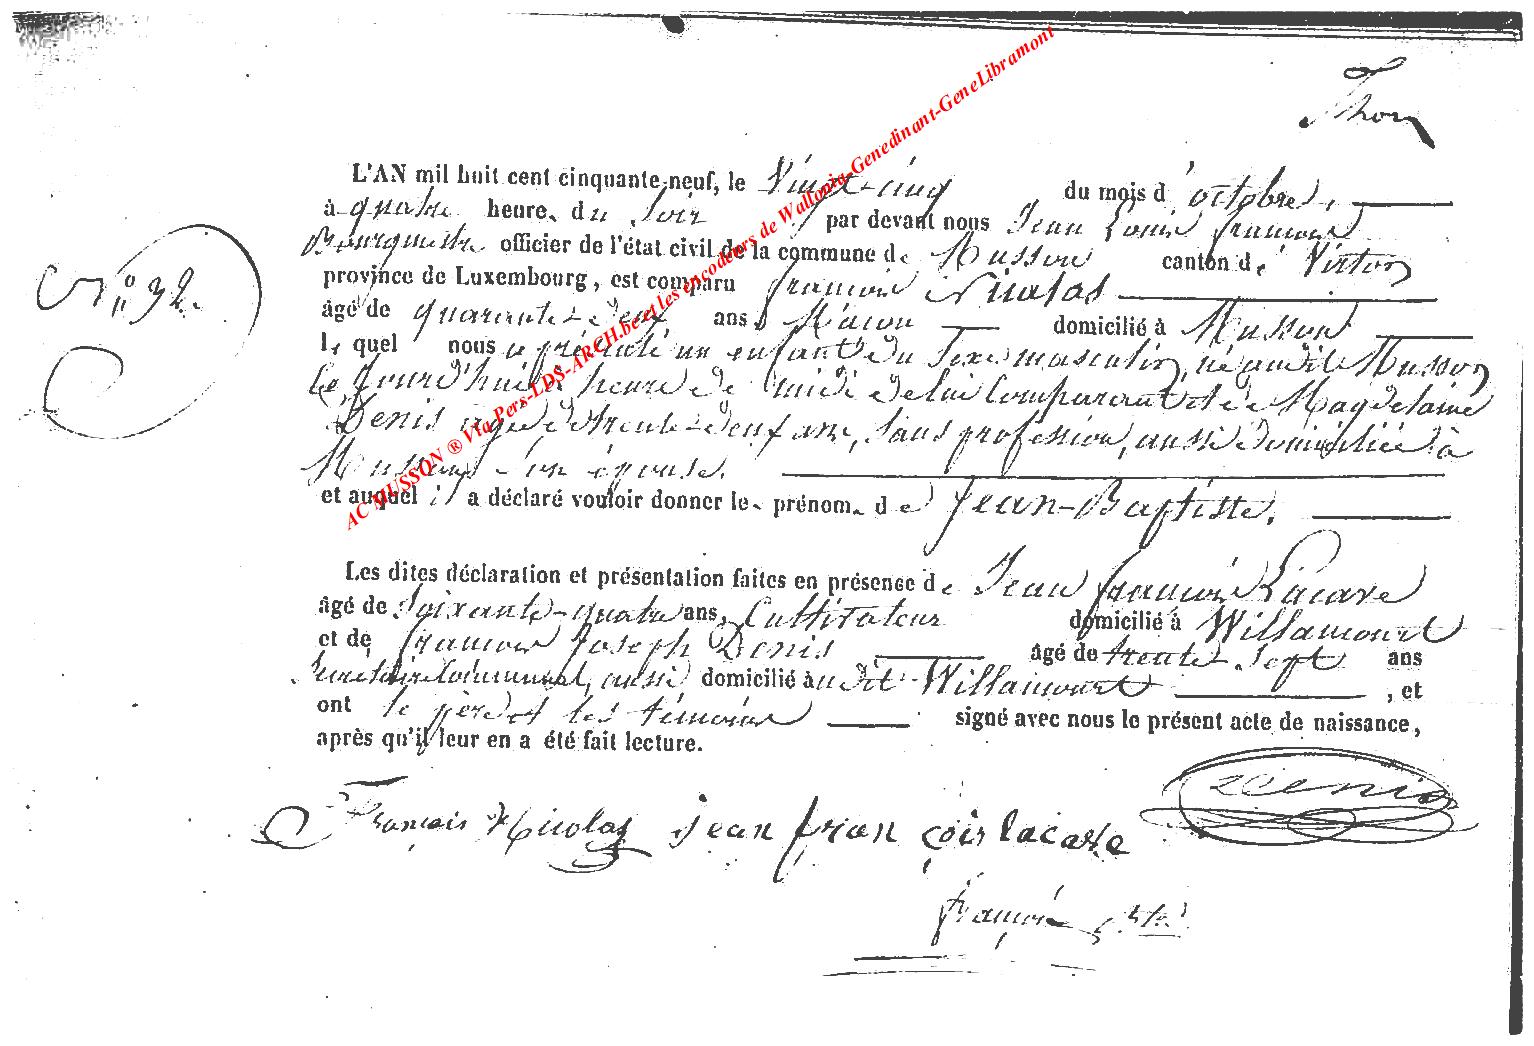 L'AN mil huit cent cinquante-neuf, le Vingt-cinq du mois d'octobre,
à quatre heures du soir par devant nous Jean Louis François
Bourgmestre officier de l'état civil de la commune de Musson canton de Virton
province de Luxembourg, est comparu François Nicolas
âgé de quarante-deux ans, Maçon domicilié à Musson
lequel nous a présenté un enfant du sexe masculin, né audit Musson
ce jourd'hui heure de midi de lui comparant et de Magdelaine
Denis âgée de trente-deux ans, sans profession, aussi domiciliée à
Musson, son épouse.
et auquel il a déclaré vouloir donner le prénom de Jean-Baptiste.
N° 32.
Les dites déclaration et présentation faites en présence de Jean François Lacave
âgé de soixante-quatre ans, Cultivateur domicilié à Willancourt
et de François Joseph Denis âgé de trente-sept ans
Secrétaire Communal, aussi domicilié audit Willancourt, et
ont le père et les témoins signé avec nous le présent acte de naissance,
après qu'il leur en a été fait lecture.
François Nicolas jean françois lacave Denis
François
AC MUSSON ® Via Pers-LDS-ARCH.be et les encodeurs de Wallonia-Genedinant-GeneLibramont